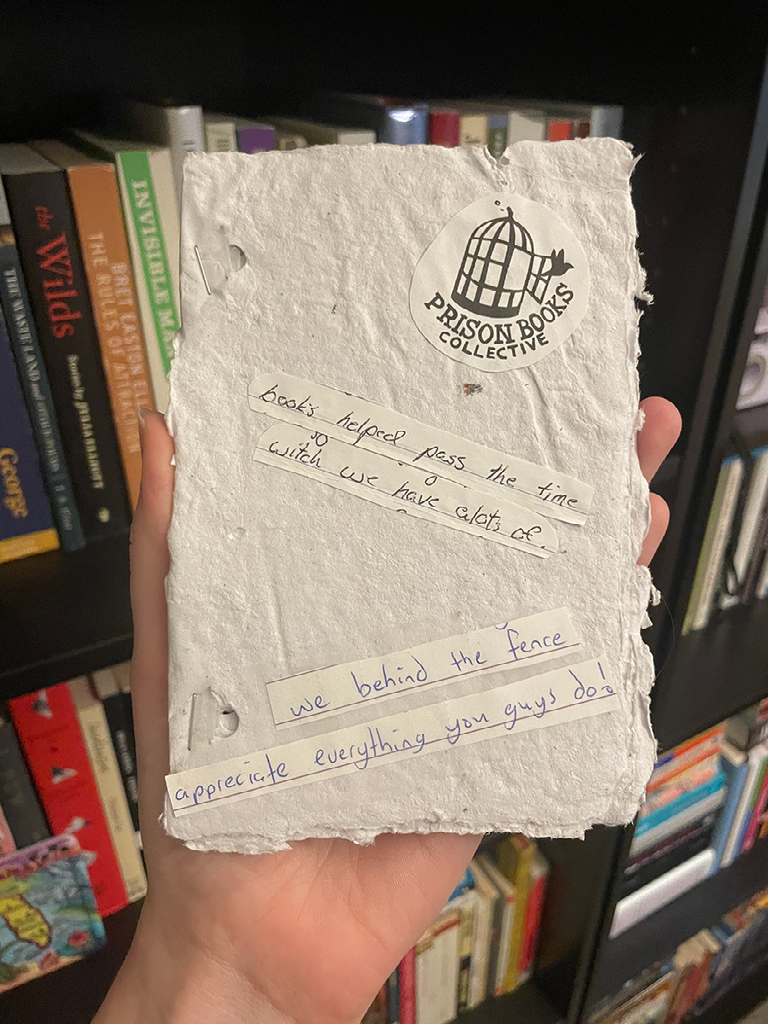 PRISON BOOKS
COLLECTIVE
books helped pass the time
so
witch we have alots of.
we behind the fence
appreciate everything you guys do!
the Wilds
THE RULES OF ATTRACTION
INVISIBLE MAN
THE WASTE LAND
George